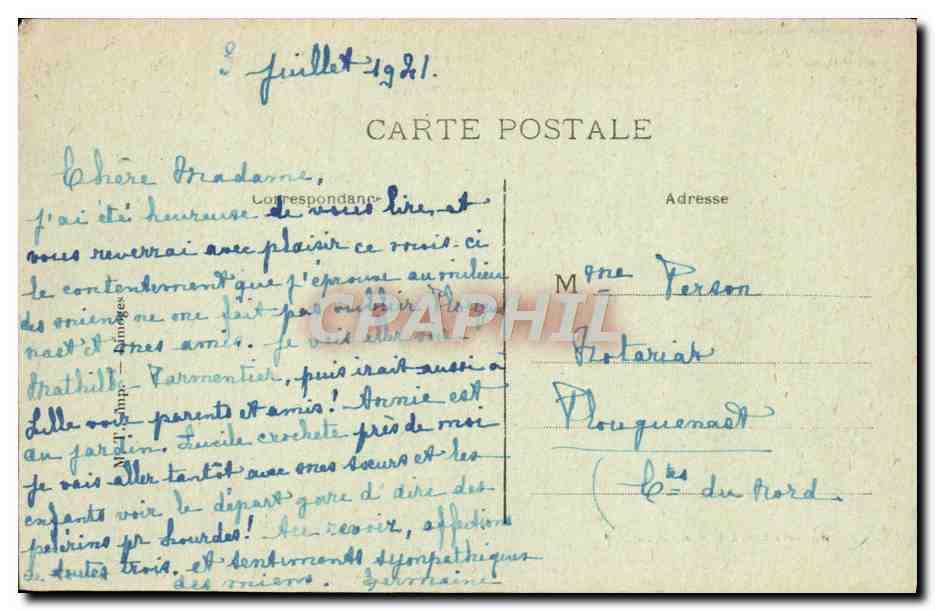 8 Juillet 1921.
CARTE POSTALE
Chère Madame,
Correspondance
Adresse
j'ai été heureuse de vous lire et
vous reverrai avec plaisir ce mois-ci
le contentement que j'éprouve au milieu
des miens ne me fait pas oublier Plougue
nast et mes amis. Je vais
Mathilde Parmentier, puis irait aussi à
Lille voir parents et amis! Annie est
au jardin. Lucile crochète près de moi
je vais aller tantôt avec mes sœurs et les
enfants voir le départ gare d' des
pèlerins pr Lourdes! Au revoir, affections
de toutes trois. et sentiments sympathiques
des miens. Germaine
Mme Person
Notariat
Plouguenast
(Ctes du Nord.
M. T. Imp. — Limoges
CPAPHIL